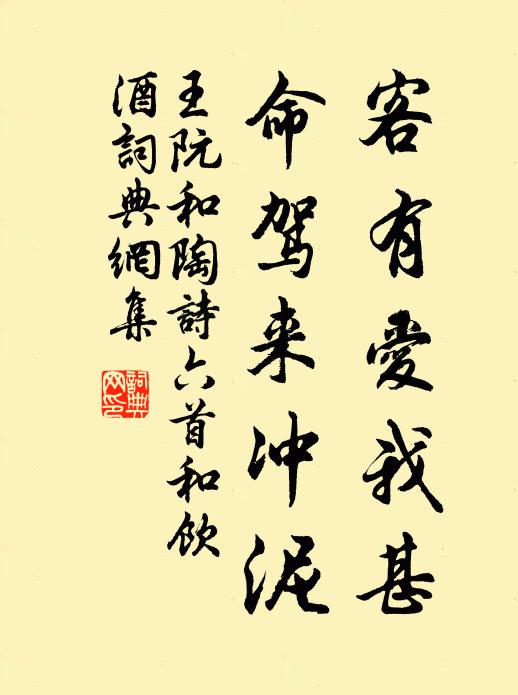 客有愛我甚
命驾来冲泥
王阮和陶詩六首和飲
酒詞典網集
詞典
网印